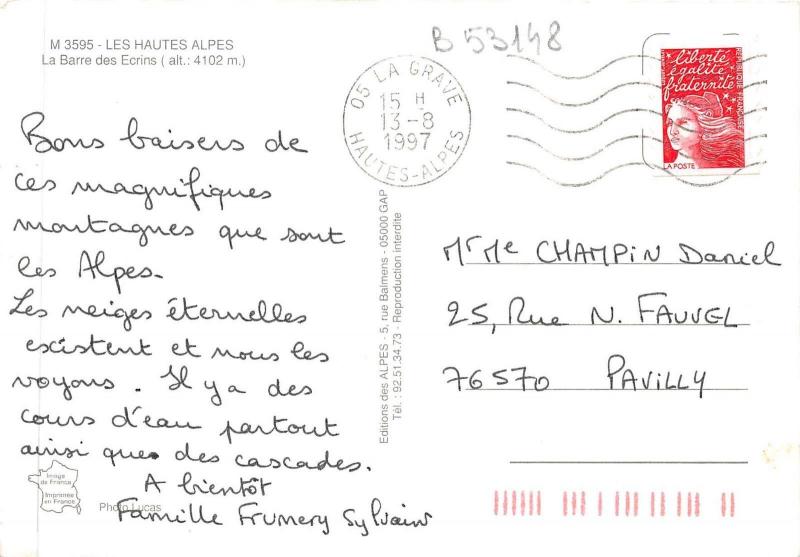 M 3595 - LES HAUTES ALPES
La Barre des Ecrins ( alt.: 4102 m.)
B 53148
05 LA GRAVE
15 H
13-8
1997
HAUTES-ALPES
liberté
égalité
fraternité
REPUBLIQUE FRANÇAISE
LA POSTE
Bons baisers de
ces magnifiques
montagnes que sont
les Alpes.
Les neiges éternelles
existent et nous les
voyons. Il y a des
cours d'eau partout
ainsi que des cascades.
A bientôt
Famille Frumery Sylvain
Editions des ALPES - 5, rue Balmens - 05000 GAP
Tél. : 92.51.34.73 - Reproduction interdite
Mr Me CHAMPIN Daniel
25, Rue N. FAUVEL
76570 PAVILLY
Image
de France
Imprimée
en France
Photo Lucas